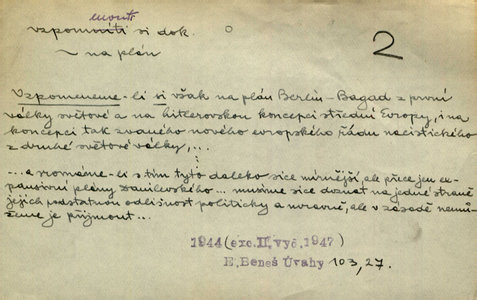 vzpomenouti si dok. 2
~ na plán
Vzpomeneme-li si však na plán Berlin-Bagdad z první
války světové a na hitlerovskou koncepci střední Evropy, i na
koncepci tak zvaného nového evropského řádu nacistického
z druhé světové války,...
...a srovnáme-li s tím tyto daleko sice mírnější, ale přece jen ex-
pansivní plány Danilevského... musíme sice doznat na jedné straně
jejich podstatnou odlišnost politicky a mravně, ale v zásadě nemů-
žeme je přijmout...
1944 (exc. II. vyd. 1947)
E. Beneš Úvahy 103,27.